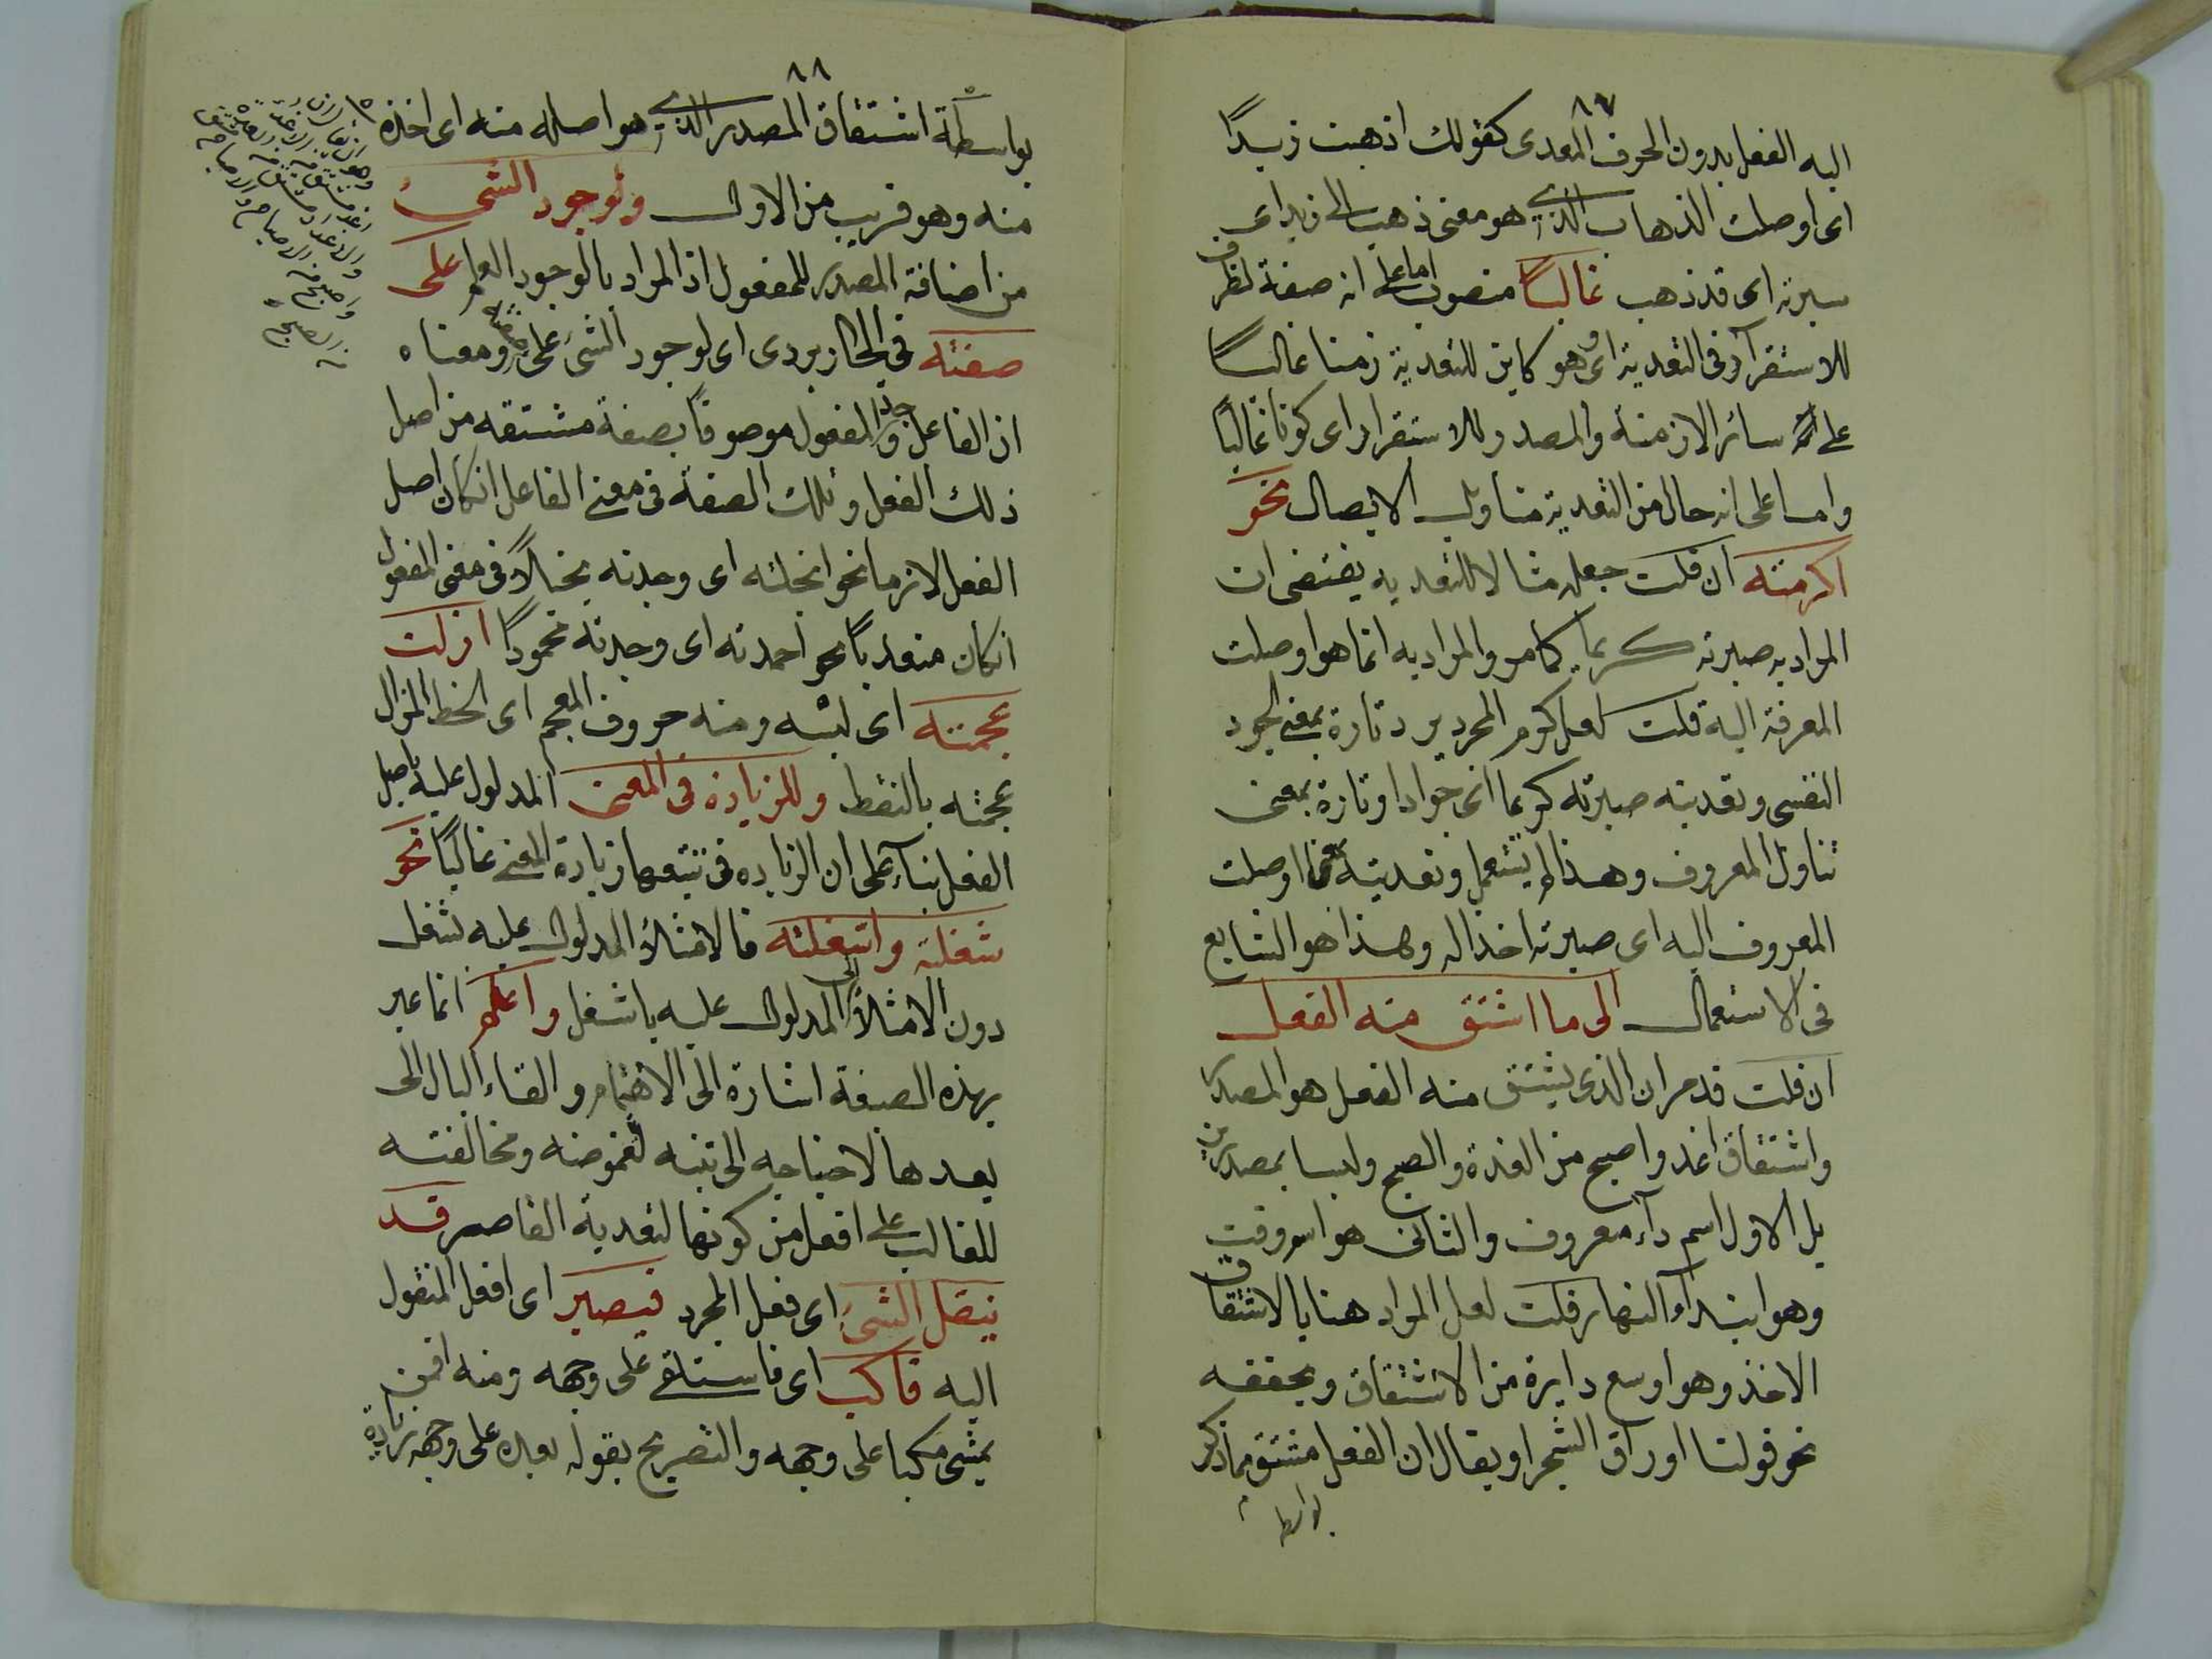 ٨٧
اليه الفعل بدون الحرف المعدى كقولك اذهبت زيدًا
اى اوصلت الذهاب الذى هو معنى ذهب الى زيد اى
سيرته اى قد ذهب غالبًا منصوب اما على انه صفة لظرف
للاستقرار فى التعدية اى وهو كاين للتعدية زمنا غالبًا
على سائر الازمنة والمصدر وللاستقرار اى كونا غالبًا
واما على انه حال من التعدية متاويل الايصال نحو
اكرمته ان قلت جعله مثالا للتعديه يقتضى ان
المراد به صيرته كريما كما مر والمراد به انما هو اوصلت
المعرفة اليه قلت لعل كرم المجرد يرد تارة بمعنى الجود
النفسى وتعديته صيرته كريما اى جوادا وتارة بمعنى
تناول المعروف وهذا لم يستعمل وتعديته اوصلت
المعروف اليه اى صيرته اخذا له وهذا هو الشايع
فى الاستعمال الى ما اشتق منه الفعل
ان قلت قد مر ان الذى يشتق منه الفعل هو المصدر
واشتقاق اغد واصبح من الغدة والصبح وليسا بمصدرين
بل الاول اسم داء معروف والثانى هو اسم وقت
وهو ابتداء النهار قلت لعل المراد هنا بالاشتقاق
الاخذ وهو اوسع دايرة من الاشتقاق ويحققه
نحو قولنا اوراق الشجر او يقال ان الفعل مشتق مما ذكر
بواسطة
٨٨
بواسطة اشتقاق المصدر الذى هو اصله منه اى اخذه
منه وهو قريب من الاول ولوجود الشئ
من اضافة المصدر للمفعول اذ المراد بالوجود العلم على
صفته فى الجاربردى اى لوجود الشئ على صفة ومعناه
ان الفاعل وجد المفعول موصوفًا بصفة مشتقه من اصل
ذلك الفعل وتلك الصفة فى معنى الفاعل ان كان اصل
الفعل لازما نحو ابخلته اى وجدته بخيلًا وفى معنى المفعول
ان كان متعديًا نحو احمدته اى وجدته محمودًا ازلت
عجمته اى لبسه ومنه حروف المعجم اى الخط المزال
عجمته بالنقط وللزيادة فى المعنى المدلول عليه باصل
الفعل بناء على ان الزياده فى تتبعها زيادة المعنى غالبًا نحو
شغلته واشغلته فالامتلاء المدلول عليه بشغل
دون الامتلاء المدلول عليه باشغل واعلم انما عبر
بهذه الصيغة اشارة الى الاهتمام والقاء البال الى
بعدها لاحتياجه الى تنبه لغموضه ومخالفته
للغالب على افعل من كونها لتعدية القاصر قد
ينقل الشئ اى فعل المجرد فيصير اى افعل المنقول
اليه فاكب اى فاستلقى على وجهه ومنه افمن
يمشى مكبا على وجهه والتصريح بقوله بعده على وجهه زيادة
وهو ان يقال ان
والاغداد مشتق من الغدة
واصبح من الاصباح والاصباح
من الصبح